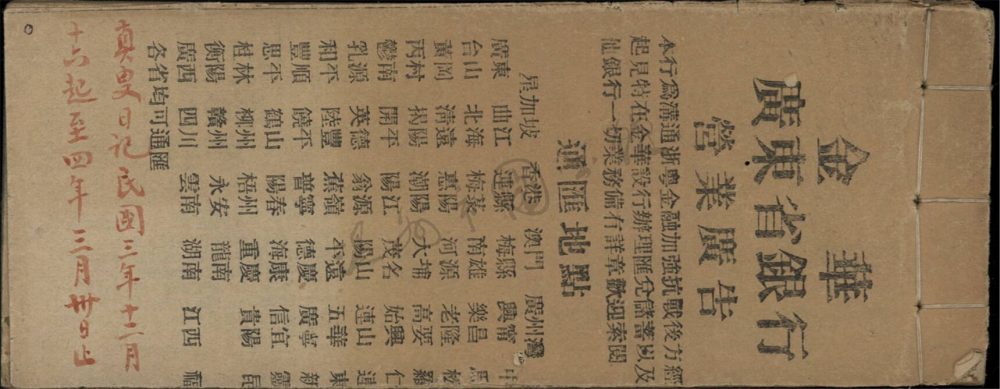 金華
廣東省銀行
營業廣告
本行爲溝通浙粵金融加強抗戰後方經
起見特在金華設行辦理匯兌儲蓄以及
仙銀行一切業務備有詳章歡迎索閱
通匯地點
星加坡 香港 澳門 廣州灣
廣東 曲江 連縣 梅縣 興甯
台山 北海 梅菉 南雄 樂昌 馬
黃岡 清遠 惠陽 河源 老隆 松
丙村 揭陽 潮陽 大埔 高要 羅
鬱南 開平 陽江 茂名 始興 仁
乳源 英德 翁源 陽山 連山 連
和平 陸豐 蕉嶺 平遠 五華 東
豐順 饒平 普寧 德慶 廣寧 新
恩平 鶴山 陽春 海康 信宜 靈
桂林 柳州 梧州 重慶 貴陽 昆
衡陽 贛州 永安 龍南
廣西 四川 雲南 湖南 江西 福
各省均可通匯
真叟日記民國三年十二月
十六起至四年三月卅日止